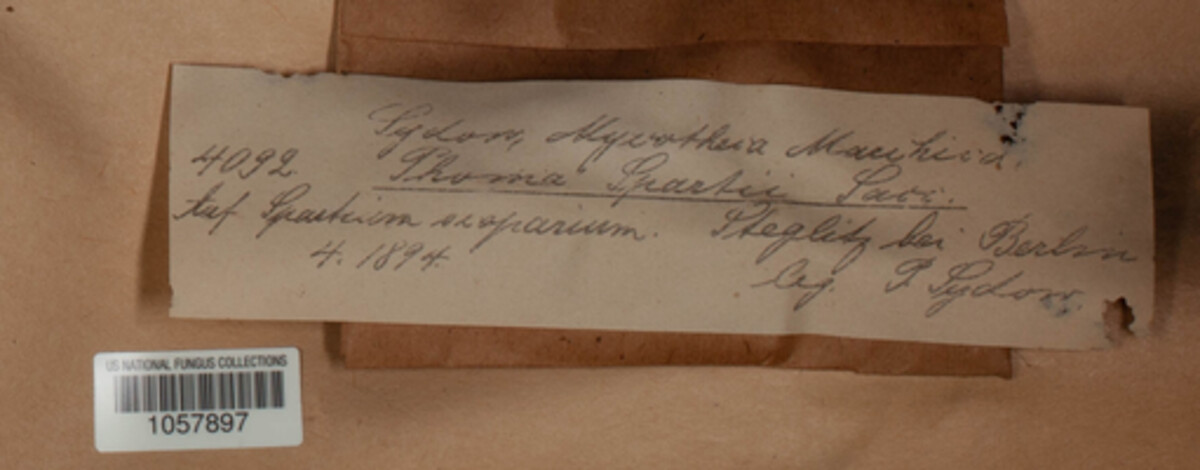 Sydow, Mycotheca Marchica.
4092. Phoma Spartii Sacc.
Auf Spartium scoparium. Steglitz bei Berlin
4. 1894. leg. P. Sydow
US NATIONAL FUNGUS COLLECTIONS
1057897